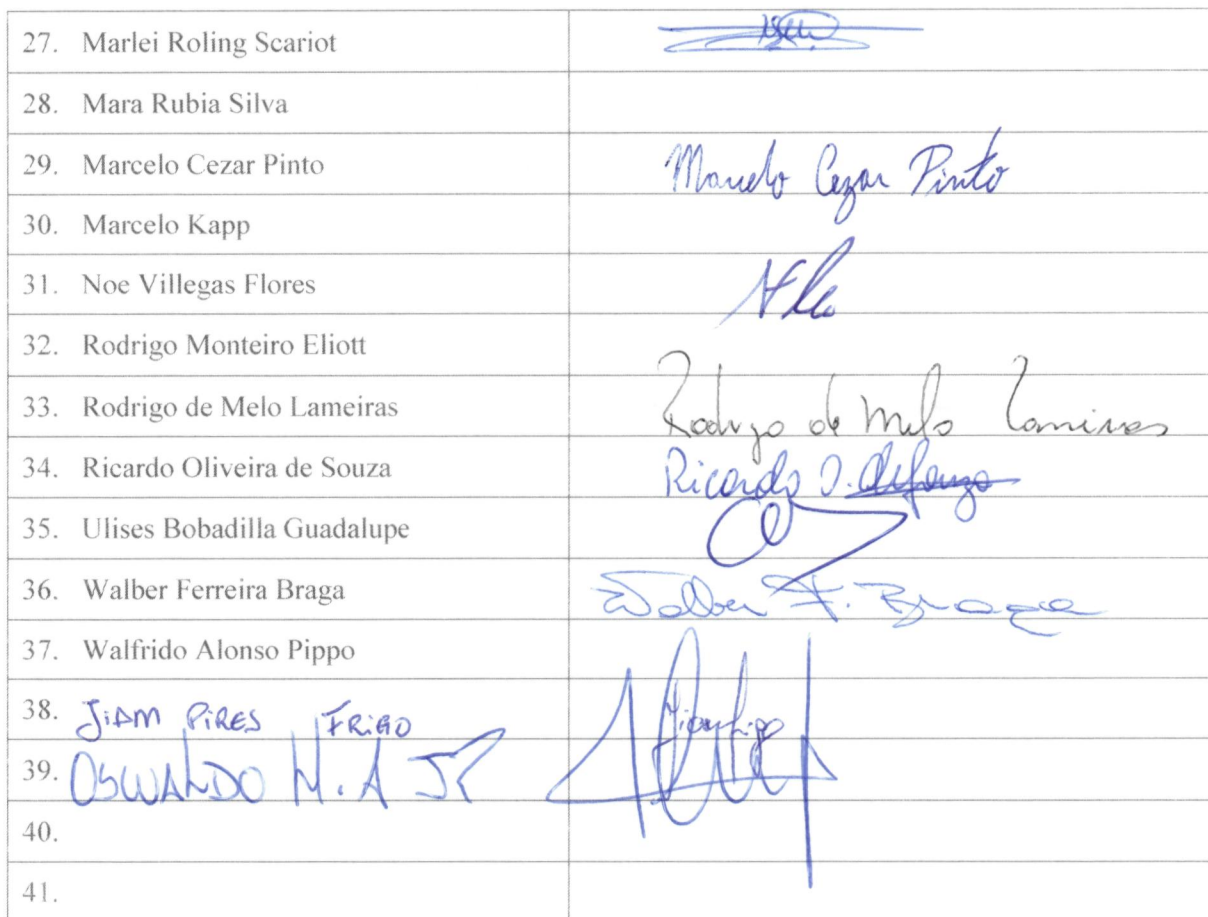 27. Marlei Roling Scariot
28. Mara Rubia Silva
29. Marcelo Cezar Pinto Marcelo Cezar Pinto
30. Marcelo Kapp
31. Noe Villegas Flores
32. Rodrigo Monteiro Eliott
33. Rodrigo de Melo Lameiras Rodrigo de Melo Lameiras
34. Ricardo Oliveira de Souza Ricardo O.
35. Ulises Bobadilla Guadalupe
36. Walber Ferreira Braga Walber F. Braga
37. Walfrido Alonso Pippo
38. JIAM PIRES FRIGO
39. OSWALDO H. A JR
40.
41.